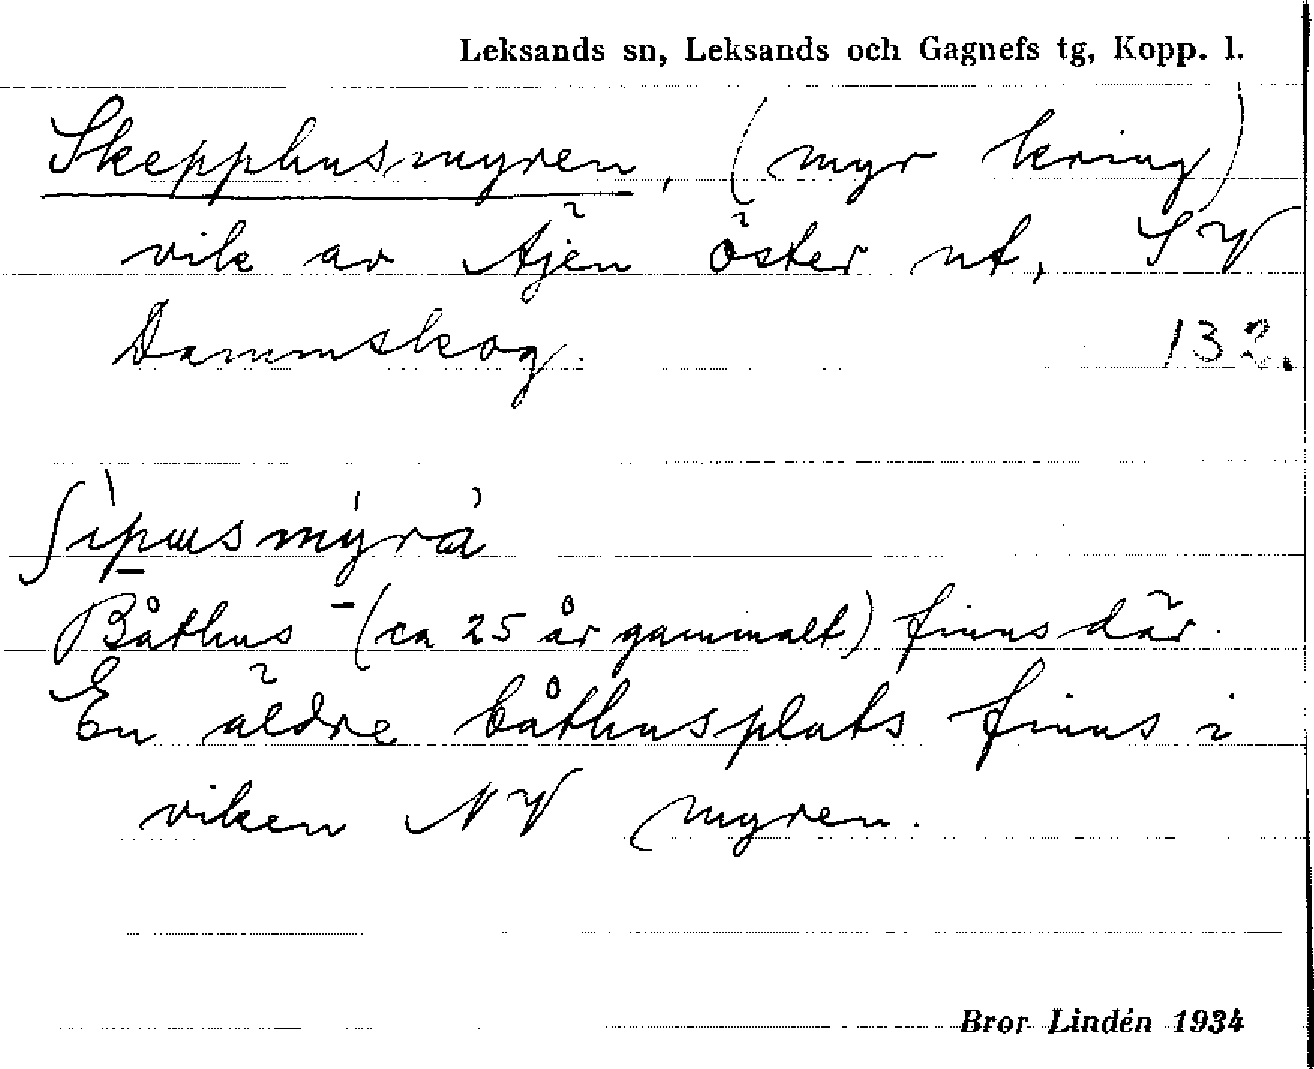 Leksands sn, Leksands och Gagnefs tg, Kopp. l.
Skepphusmyren, (myr kring)
vik av Äjen öster ut, SV
Dammskog. 132.
ʃipusmýrà
Båthus (ca 25 år gammalt) finns där.
En äldre båthusplats finns i
viken NV myren.
Bror Lindén 1934